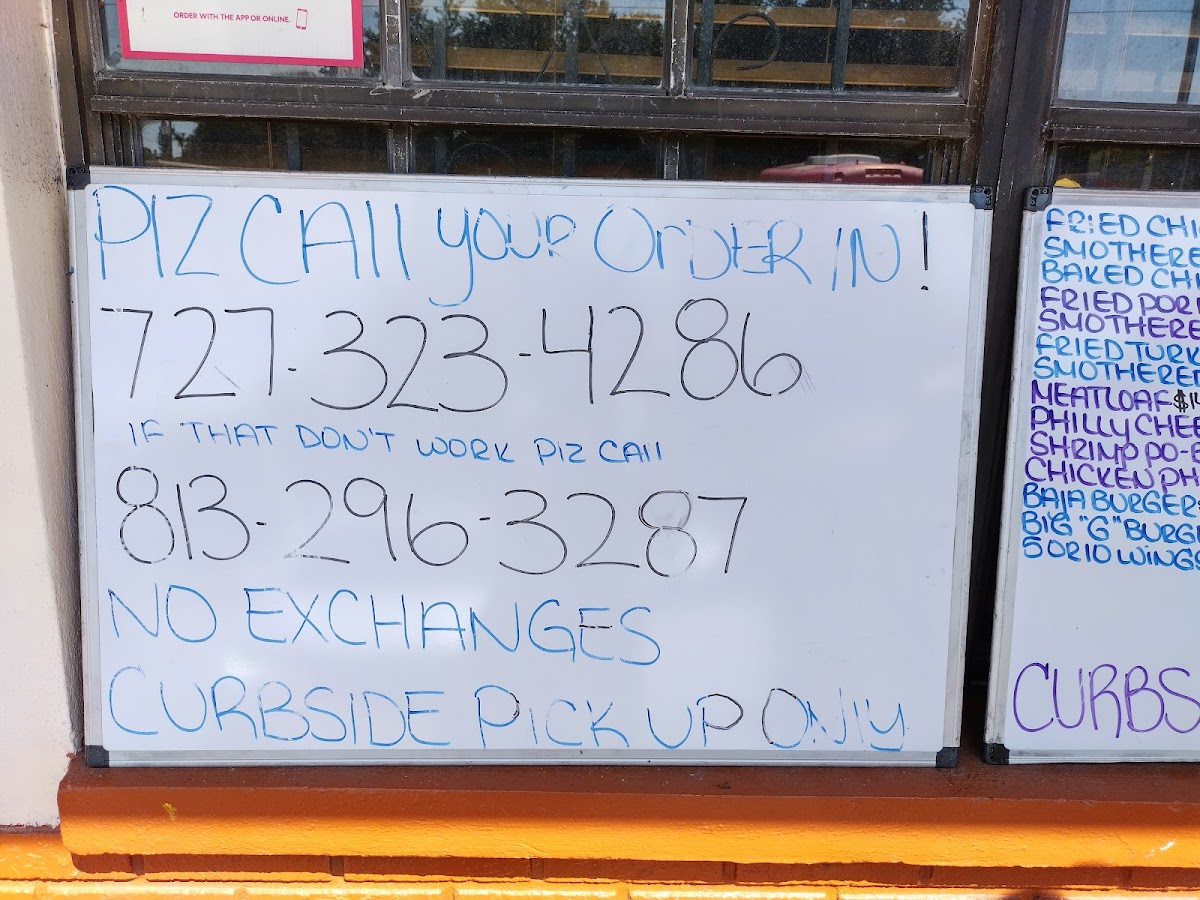 ORDER WITH THE APP OR ONLINE.
PIZ CAll your OrDER IN!
727-323-4286
IF THAT DON'T WORK PIZ CAll
813-296-3287
NO EXCHANGES
CURBSIDE PICK UP ONly
FRIED
SMOTHERE
BAKED
FRIED
SMOTHERE
FRIED TURK
SMOTHERED
MEATLOAF
PHILLY CHEE
SHRIMP PO-
CHICKEN PH
BAJA BURGER
BIG "G" BURG
5 OR 10 WINGS
CURBS